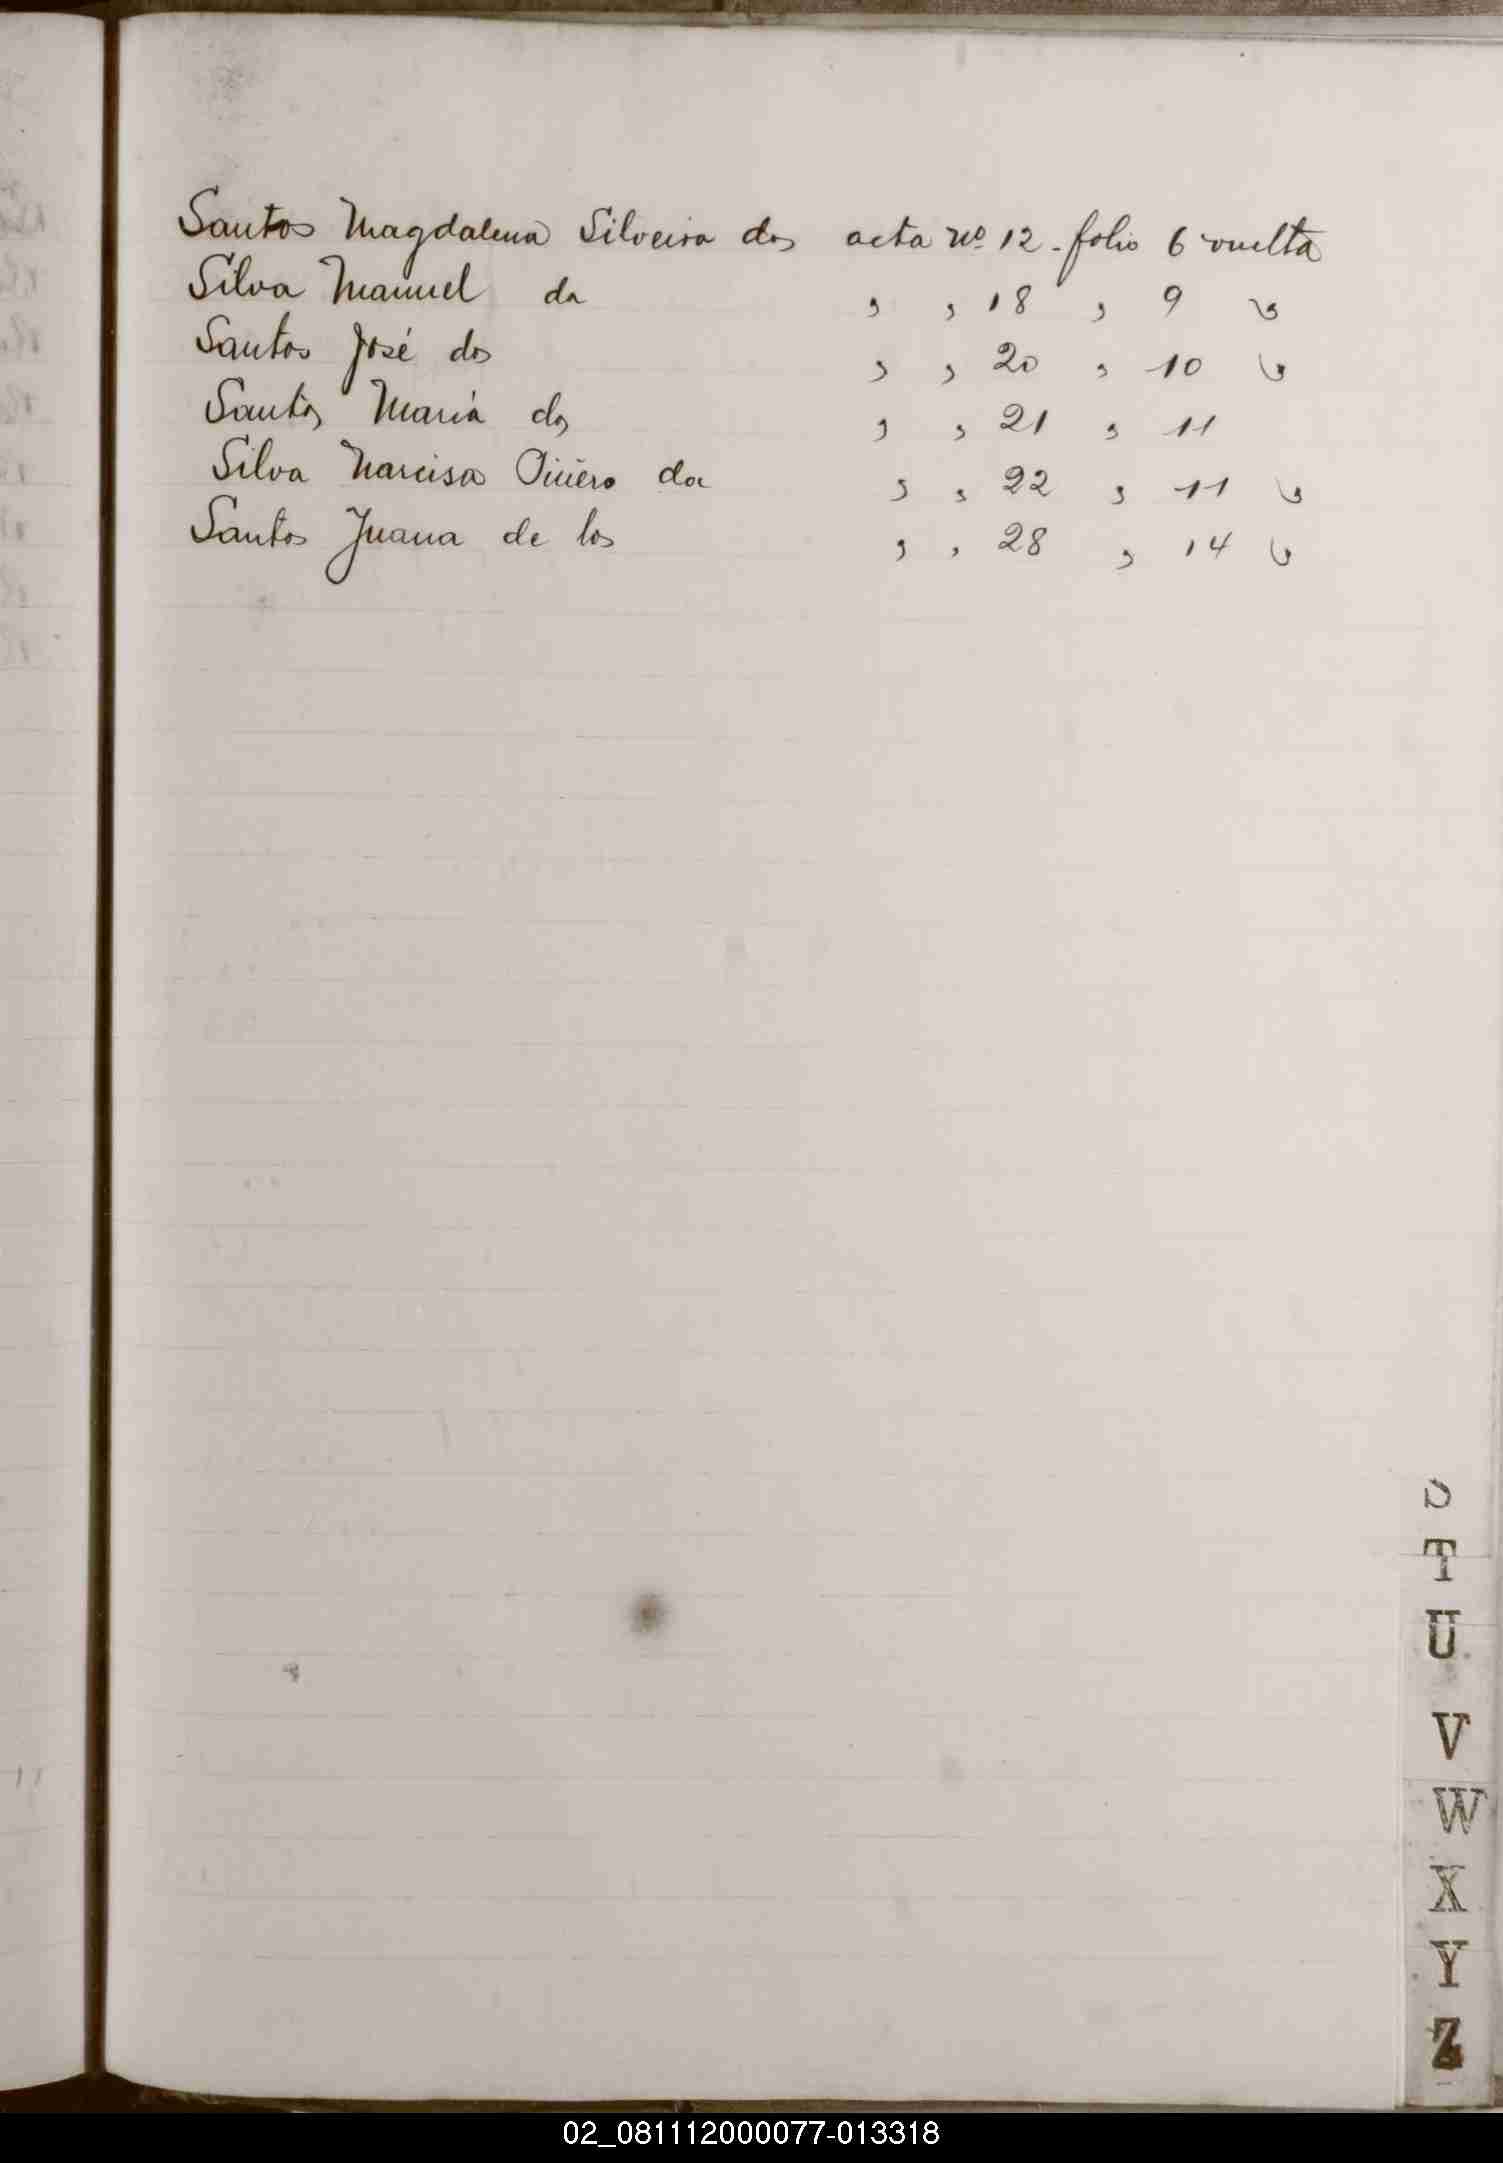 Santos Magdalena Silveira dos acta nº 12 - folio 6 vuelta
Silva Manuel da " " 18 " 9 "
Santos José dos " " 20 " 10 "
Santos María dos " " 21 " 11
Silva Narcisa da " " 22 " 11 "
Santos Juana de los " " 28 " 14 "
S
T
U
V
W
X
Y
Z
02_081112000077-013318